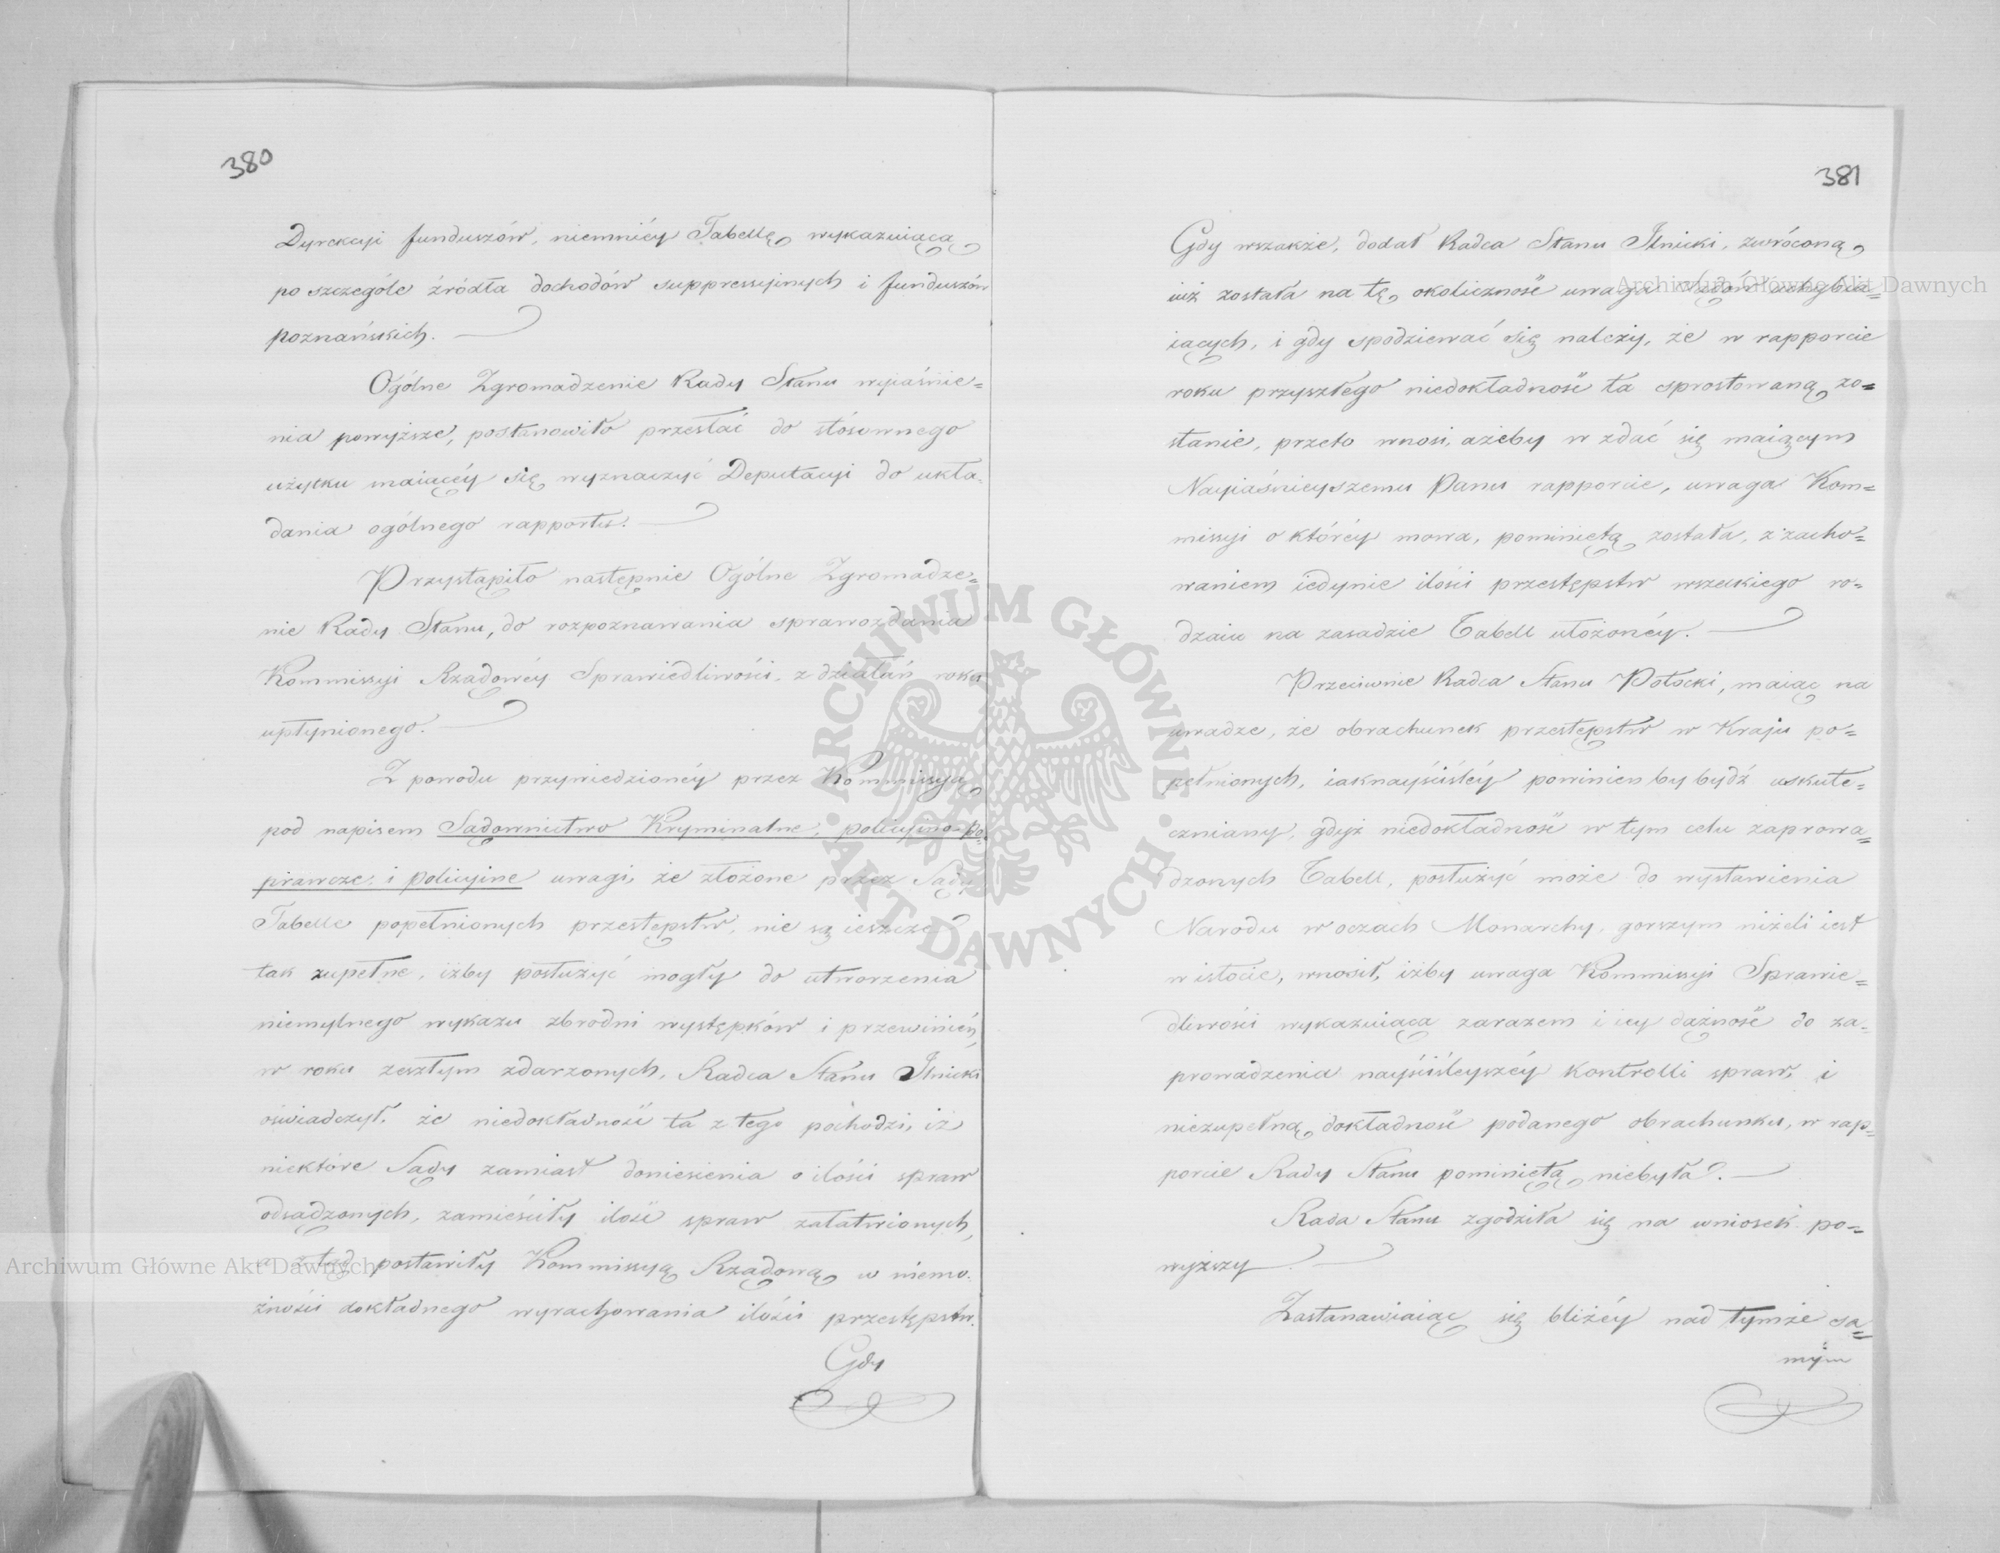 380
Dyrekcyi funduszów, niemniéy Tabellę wykazuiącą
poszczególe źródła dochodów suppressyinych i funduszów
poznańskich.
Ogólne Zgromadzenie Rady Stanu wyiaśnie=
nia powyższe, postanowiło przesłać do stósownego
użytku maiącéy się wyznaczyć Deputacyi do ukła-
dania ogólnego rapportu.
Przystąpiło następnie Ogólne Zgromadze=
nie Rady Stanu, do rozpoznawania sprawozdania
Kommissyi Rządowéy Sprawiedliwości, z działań roku
upłynionego.
Z powodu przywiedzionéy przez Kommissyą
pod napisem Sądownictwo Kryminalne, policyino-po=
prawcze i policyine uwagi, że złożone przez Sądy
Tabelle popełnionych przestępstw, nie są ieszcze
tak zupełne, iżby posłużyć mogły do utworzenia
niemylnego wykazu zbrodni występków i przewinień,
w roku zeszłym zdarzonych, Radca Stanu Ilnicki
oświadczył, że niedokładność ta z tego pochodzi, iż
niektóre Sądy zamiast doniesienia o ilości spraw
odsądzonych, zamieściły ilość spraw załatwionych,
postawiły Kommissyą Rządową w niemo-
żności dokładnego wyrachowania ilości przestępstw.
Gdy
381
Gdy wszakże, dodał Radca Stanu Ilnicki, zwróconą
iuż została na tę okoliczność uwaga Sądów uchybia=
iących, i gdy spodziewać się należy, że w rapporcie
roku przyszłego niedokładność ta sprostowaną zo=
stanie, przeto wnosi, ażeby w zdać się maiącym
Nayiaśnieyszemu Panu rapporcie, uwaga Kom=
missyi o któréy mowa, pominiętą została, z zacho=
waniem iedynie ilości przestępstw wszelkiego ro=
dzaiu na zasadzie Tabell ułożonéy.
Przeciwnie Radca Stanu Potocki, maiąc na
uwadze, że obrachunek przestępstw w Kraju po=
pełnionych, iaknayściśléy powinien by bydź uskute=
czniany, gdyż niedokładność w tym celu zaprowa=
dzonych Tabell, posłużyć może do wystawienia
Narodu w oczach Monarchy, gorszym niżeli iest
w istocie, wnosił, iżby uwaga Kommissyi Sprawie=
dliwości wykazuiąca zarazem i iey dążność do za-
prowadzenia nayściśleyszéy kontrolli spraw, i
niezupełną dokładność podanego obrachunku, w rap=
porcie Rady Stanu pominiętą niebyła.
Rada Stanu zgodziła się na wniosek po=
wyższy
Zastanawiaiąc się bliżéy nad tymże sa=
mym
Archiwum Główne Akt Dawnych
Archiwum Główne Akt Dawnych
ARCHIWUM GŁÓWNE AKT DAWNYCH